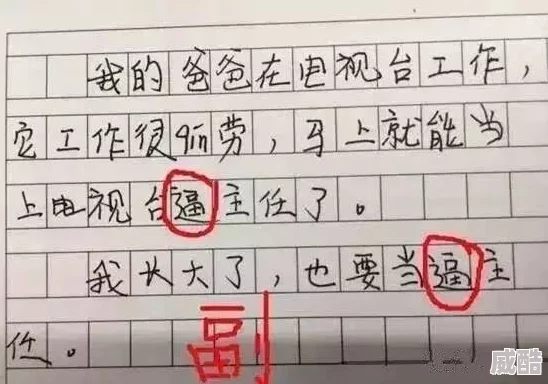 我的爸爸在电视台工作，
它工作很qin劳，马上就能当
上电视台逼主任了。
我长大了，也要当逼主
任。
副
威酷